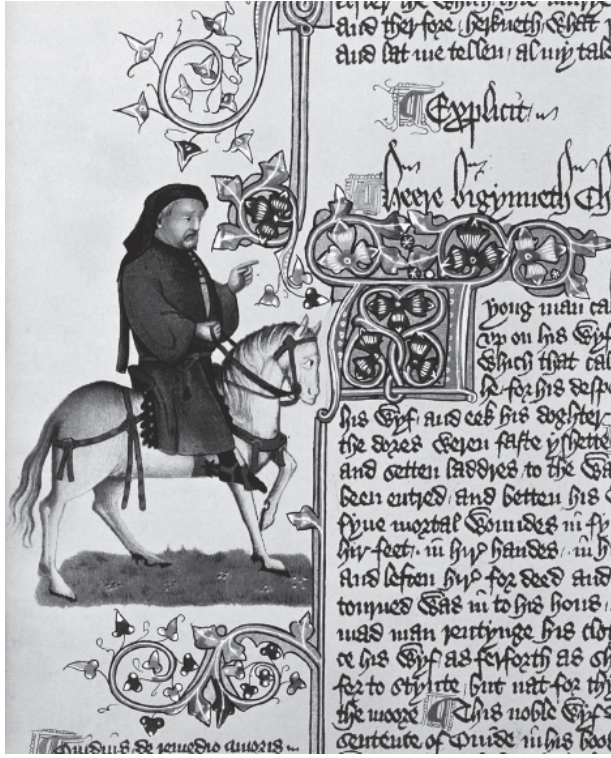 And therfore herkneth What
And lat me tellen al my tale
Explicit
Heere bigynneth Ch
A yong man cal
vp on his Wyf
Which that cal
he for his desp
his Wyf and eek his doghter
the dores Weren faste yshette
and setten laddres to the Wa
been entred and betten his
fyue mortal Woundes in
hir feet in hir handes in h
And leften hir for deed and
tourned Was in to his hous
mad man rentynge his clot
ce his Wyf as ferforth as
for to stynte but nat for thy
the moore This noble Wyf
sentence of Ouide in his book
Ouidius de remedio amoris